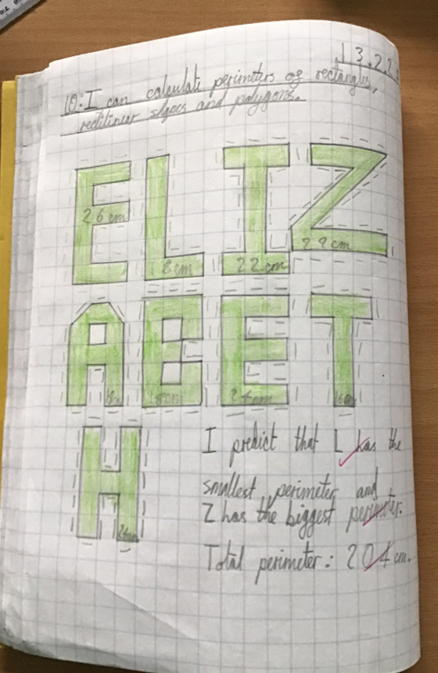 13.2.2
LO: I can calculate perimeters of rectangles,
rectilinear shapes and polygons.
E L I Z
26cm 8cm 22cm 29cm
A B E T
H
I predict that L has the
smallest perimeter and
Z has the biggest perimeter.
Total perimeter: 204cm.